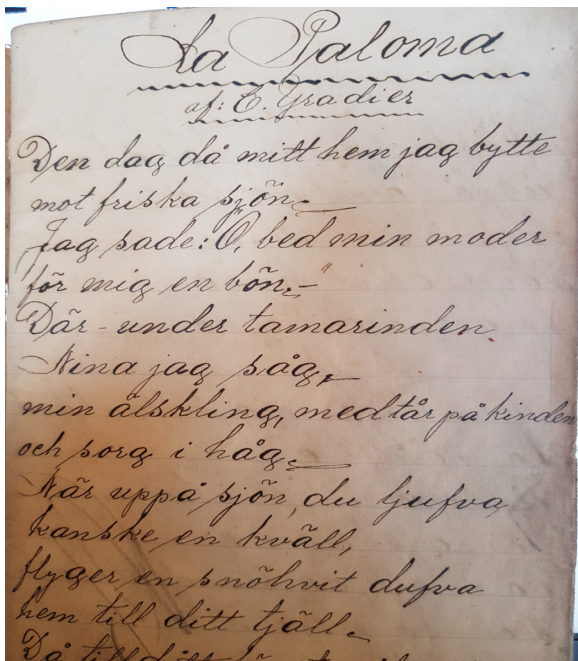 La Paloma
af: E. Gradier
Den dag då mitt hem jag bytte
mot friska sjön.—
Jag sade: "O, bed min moder
för mig en bön.—"
Där – under tamarinden.
Nina jag såg,—
min älskling, med tår på kinden
och sorg i håg.—
När uppå sjön, du ljufva
kanske en kväll,
flyger en snöhvit dufva
hem till ditt tjäll.—
Då till ditt